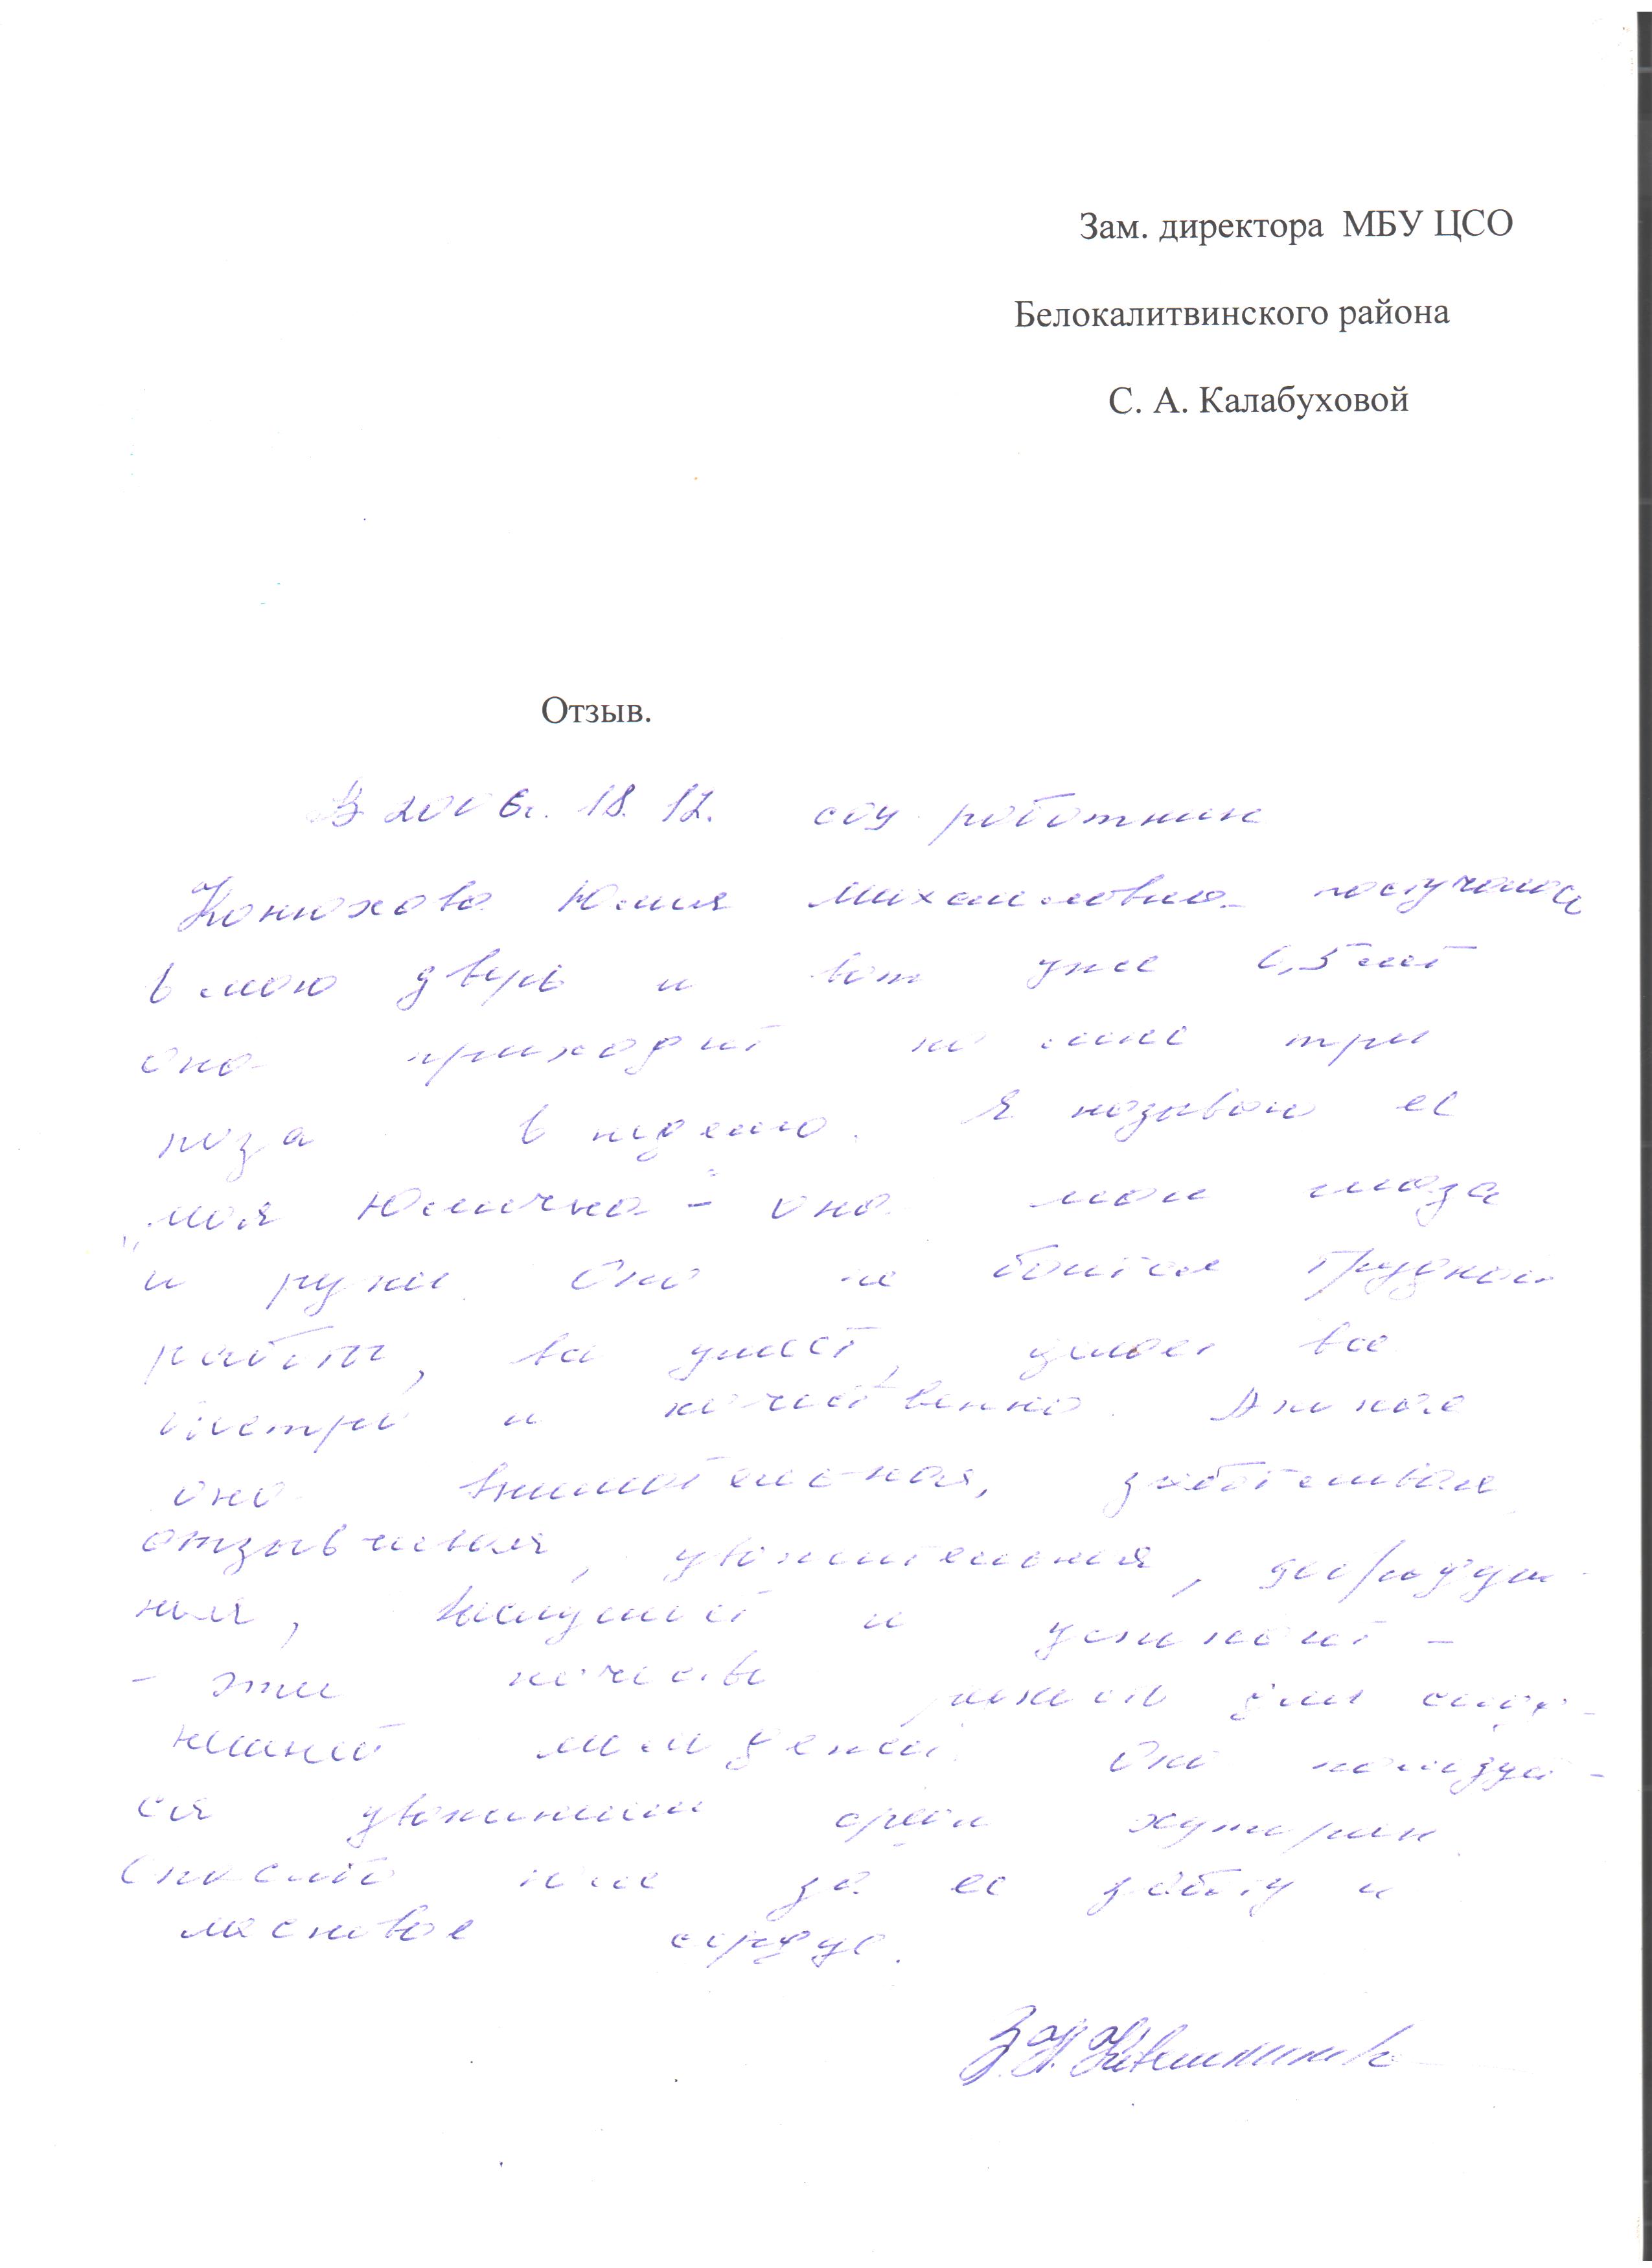 Зам. директора МБУ ЦСО
Белокалитвинского района
С. А. Калабуховой
Отзыв.
В 2006г. 18. 12. соц работник
Конюхова Юлия Михайловна постучалась
в мою дверь и вот уже 6,5 лет
она приходит ко мне три
раза в неделю. Я называю её
"моя Юлечка - она мои глаза
и руки. Она не боится трудной
работы, все умеет, делает все
быстро и качественно. А какая
она внимательная, заботливая
отзывчивая, уважительная,
ная, выслушает и успокоит -
- эти качества редкость для сегод-
няшней молодежи. Она пользует-
ся уважением среди хуторян.
Спасибо ей за её заботу и
ласковое сердце.